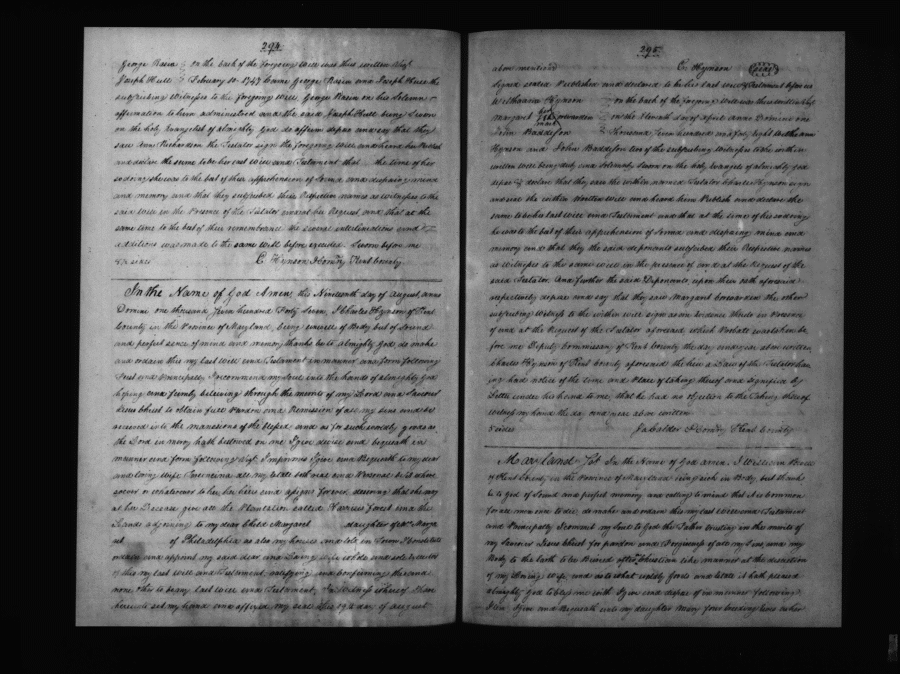 294
George Rasin } On the back of the foregoing Will was thus written Vizt
Joseph Hull } February 10. 1747 Came George Rasin and Joseph Hull the
subscribing Witnesses to the foregoing Will George Rasin on his Solemn
affirmation to him administred and the said Joseph Hull being Sworn
on the holy Evangelist of almighty God do affirm depose and say that they
saw Ann Richardson the Testator sign the foregoing Will and heard her Publish
and declare the same to be her last Will and Testament that the time of her
so doing she was to the best of their apprehension of Sound and disposing mind
and memory and that they subscribed their Respective names as witnesses to the
said Will in the Presence of the Testator and at her Request and that at the
same time to the best of their remembrance the several interlineations and
additions was made to the same Will before executed Sworn before me
C Hynson D Comry Kent County
In the Name of God Amen, this Nineteenth day of August, anno
Domini one thousand seven hundred Forty Seven, I Charles Hynson of Kent
County in the Province of Maryland, being of Body but of Sound
and perfect sense of mind and memory thanks be to almighty God, do make
and ordain this my last Will and Testament in manner and form following
First and Principally I recommend my Soul into the hands of almighty God
hoping and firmly believing through the merits of my Lord and Saviour
Jesus Christ to obtain full Pardon and Remission of all my sins and be
received into the mansions of the blessed and as for such worldly goods as
the Lord in mercy hath bestowed on me I give devise and bequeath in
manner and form following Vizt Imprimis I give and Bequeath to my dear
and loving Wife all my Estate both real and Personal
to her, her heirs and assigns forever desiring that she may
at her Decease give all the Plantation called Harris Forest and the
Lands adjoining to my dear Child Margaret daughter of
of Philadelphia as also my houses and lots in Town I Constitute
make and appoint my said dear and loving Wife whole and sole Executor
of this my last Will and Testament, ratifying and confirming this and
none other to be my last Will and Testament, In Witness whereof I have
hereunto set my hand and affixed my seal this 19th day of August
295
above mentioned C Hynson (seal)
Signed sealed Published and declared to be his last Will & Testament before us
Williamin Hynson } On the back of the foregoing Will was thus written Vizt
Margaret her mark } On the Eleventh day of April anno Domini one
John Baddison } Thousand seven hundred and forty Eight
Hynson and John Baddison two of the subscribing Witnesses to the within
written Will being duly and solemnly Sworn on the holy Evangels of almighty God
depose & declare that they saw the within named Testator Charles Hynson sign
and seal the within Written Will and heard him Publish and declare the
same to be his last Will and Testament and that at the time of his so doing
he was to the best of their apprehension of Sound and disposing mind and
memory and that they the said deponents subscribed their Respective names
as Witnesses to the same Will in the presence of and at the Request of the
said Testator. And further the said Deponents, upon their oath aforesaid
respectively depose and say that they saw Margaret the other
subscribing Witness to the within Will sign as an Evidence thereto in Presence
of and at the Request of the Testator aforesaid, which Probate was taken be
fore me Deputy Commissary of Kent County the day and year above written
Charles Hynson of Kent County aforesaid the heir at Law of the Testator hav
ing had notice of the time and Place of taking thereof and signified By
Letter under his hand to me, that he had no objection to the taking thereof
witness my hand the day and year above written
5 sides Ja Calder D Comry Kent County
Maryland Sst In the Name of God amen. I William
of Kent County in the Province of Maryland being sick in Body but thanks
be to God of Sound and perfect memory and calling to mind that it is common
for all men once to die, do make and ordain this my last Will and Testament
and Principally I commit my Soul to God the Father trusting in the merits of
my Saviour Jesus Christ for pardon and forgiveness of all my Sins, and my
Body to the Earth to be Buried after Christian like manner at the discretion
of my loving Wife, and as to what worldly goods and Estate it hath pleased
almighty God to bless me with I give and dispose of in manner following
Item I give and Bequeath unto my daughter Mary four breeding